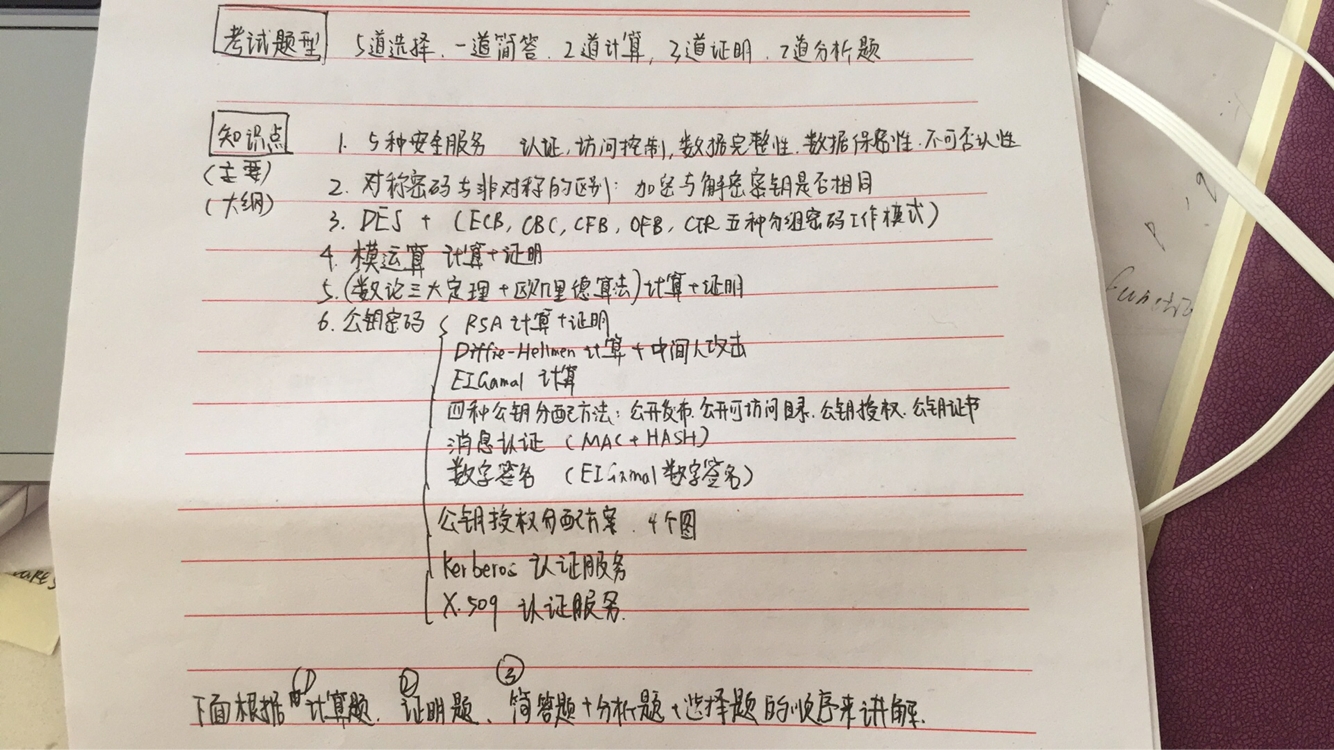 考试题型 5道选择、一道简答、2道计算, 3道证明、2道分析题
知识点 1. 5种安全服务 认证, 访问控制, 数据完整性, 数据保密性, 不可否认性
(主要)
(大纲) 2. 对称密码与非对称的区别: 加密与解密密钥是否相同
3. DES + (ECB, CBC, CFB, OFB, CTR 五种分组密码工作模式)
4. 模运算 计算+证明
5. (数论三大定理+欧几里德算法) 计算+证明
6. 公钥密码 { RSA 计算+证明
Diffie-Hellmen 计算+中间人攻击
EIGamal 计算
四种公钥分配方法: 公开发布、公开可访问目录、公钥授权、公钥证书
消息认证 (MAC+HASH)
数字签名 (EIGamal 数字签名)
公钥授权分配方案、4个图
Kerberos 认证服务
X.509 认证服务.
下面根据 ①计算题、②证明题、③简答题+分析题+选择题的顺序来讲解.
Functio